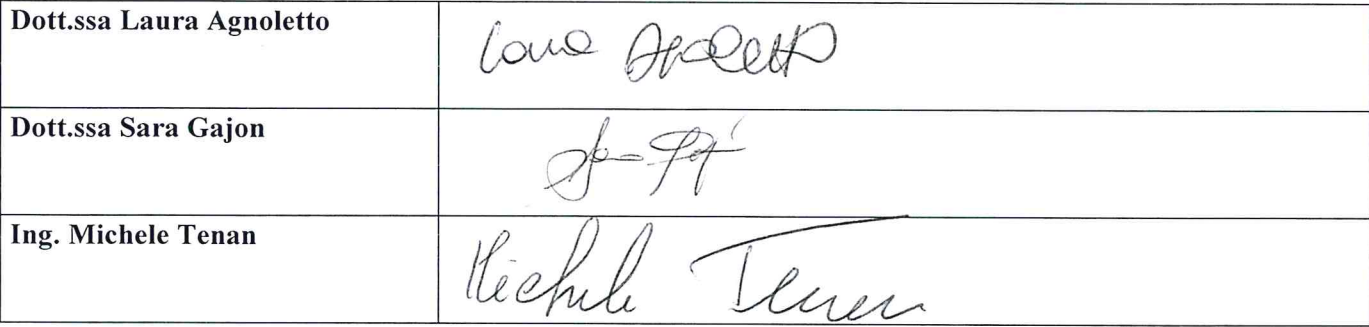 Dott.ssa Laura Agnoletto
Dott.ssa Sara Gajon
Ing. Michele Tenan
Michele Tenan